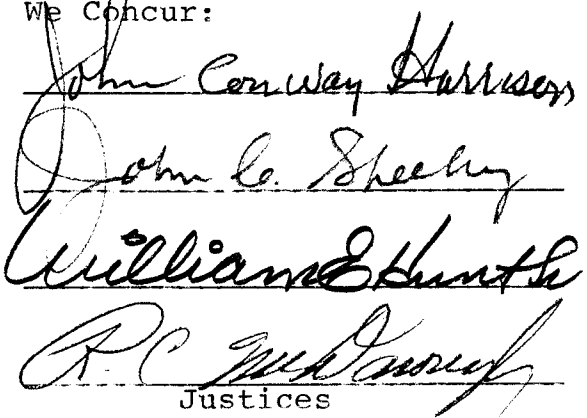 We Concur:
John Conway Harrison
John C. Sheehy
William E Hunt Sr
R. C. McDonough
Justices